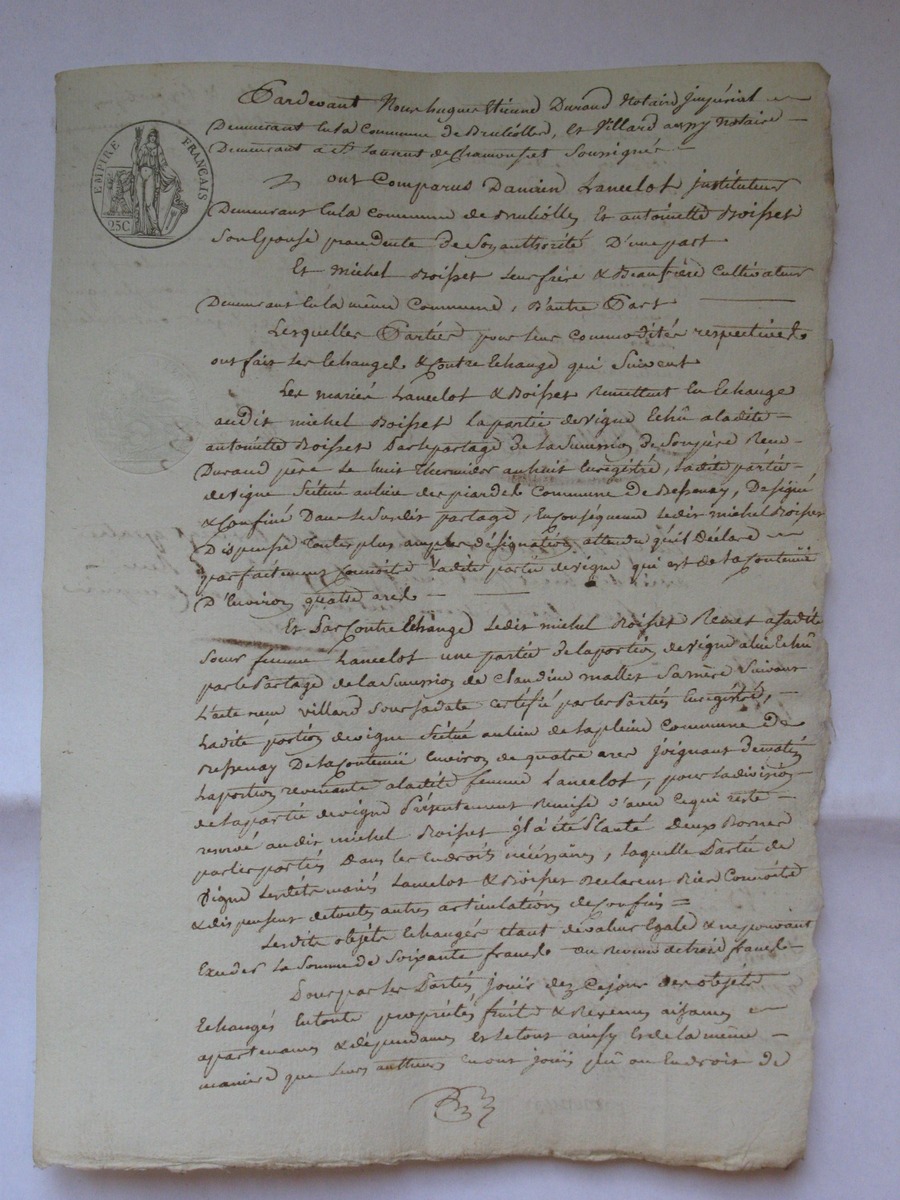 EMPIRE FRANÇAIS
25C
Pardevant Nous hugues Etienne Durand Notaire Impérial
Demeurant En la Commune de Brulliolles, et Villard aussy Notaire
Demeurant a St Laurent de Chamousset Soussignés
ont Comparus Damien Lancelot jnstituteur
Demeurant En la Commune de Brulliolles Et antoinette Boisset
Son Epouse procedente de Son authorité D'une part
Et michel Boisset leur frère & Beaufrère Cultivateur
Demeurant En la même Commune, D'autre Part
Lesquelles Parties pour leur Commodités respectives
ont fait les Echanges & Contre Echange qui Suivent
Les mariés Lancelot & Boisset Remettent En Echange
audit michel Boisset la partie de vigne Echû a ladite
antoinette Boisset Par le partage de la Succession de Son père Reçu
Durand père Le huit Thermidor an huit Enregistré, Ladite partie
de vigne Scituée au lieu des piardes Commune de Bessenay, Désigné
& Confiné Dans Le Susdit partage, En Conséquence Ledit michel Boisset
Dispense toutes plus amples désignations attendu qu'il Déclare
parfaitement Connoitre Ladite partie de vigne qui est de la Contenüe
D'Environ quatre ares
Et Par Contre Echange Ledit michel Boisset Remet a Ladite
Sœur femme Lancelot une partie de la portion de vigne a lui Echû
par le Partage de la Succession de Claudine mallet Sa mère Suivant
L'acte reçu Villard Sous Sa date Certifié par les Parties Enregistré,
Ladite portion de vigne Scitué au lieu de la plein Commune de
Bessenay De la Contenüe Environ de quatre ares joignant De matin
La portion revenante a ladite femme Lancelot, pour la division
de la partie de vigne Présentement Remise d'avec Ce qui reste
reservé audit michel Boisset jl a été Planté Deux Bornes
par les parties Dans les Endroits nécéssaires, laquelle Partie de
Vigne Lesdits mariés Lancelot & Boisset Déclarent Bien Connoitre
& dispensent de toutes autres articulations de Confins
Lesdits objéts Echangés Etant de valeur Egale & ne pouvant
Exceder La Somme de Soixante francs ou Revenu de trois francs
Pour par Les Parties jouir dez Ce jour des objéts
Echangés En toute propriétés fruits & Revenus aisances
apartenances & dépendances Et le tout ainsy Et de la même
manière que Leurs autheurs En ont jouïs pû ou En droit de